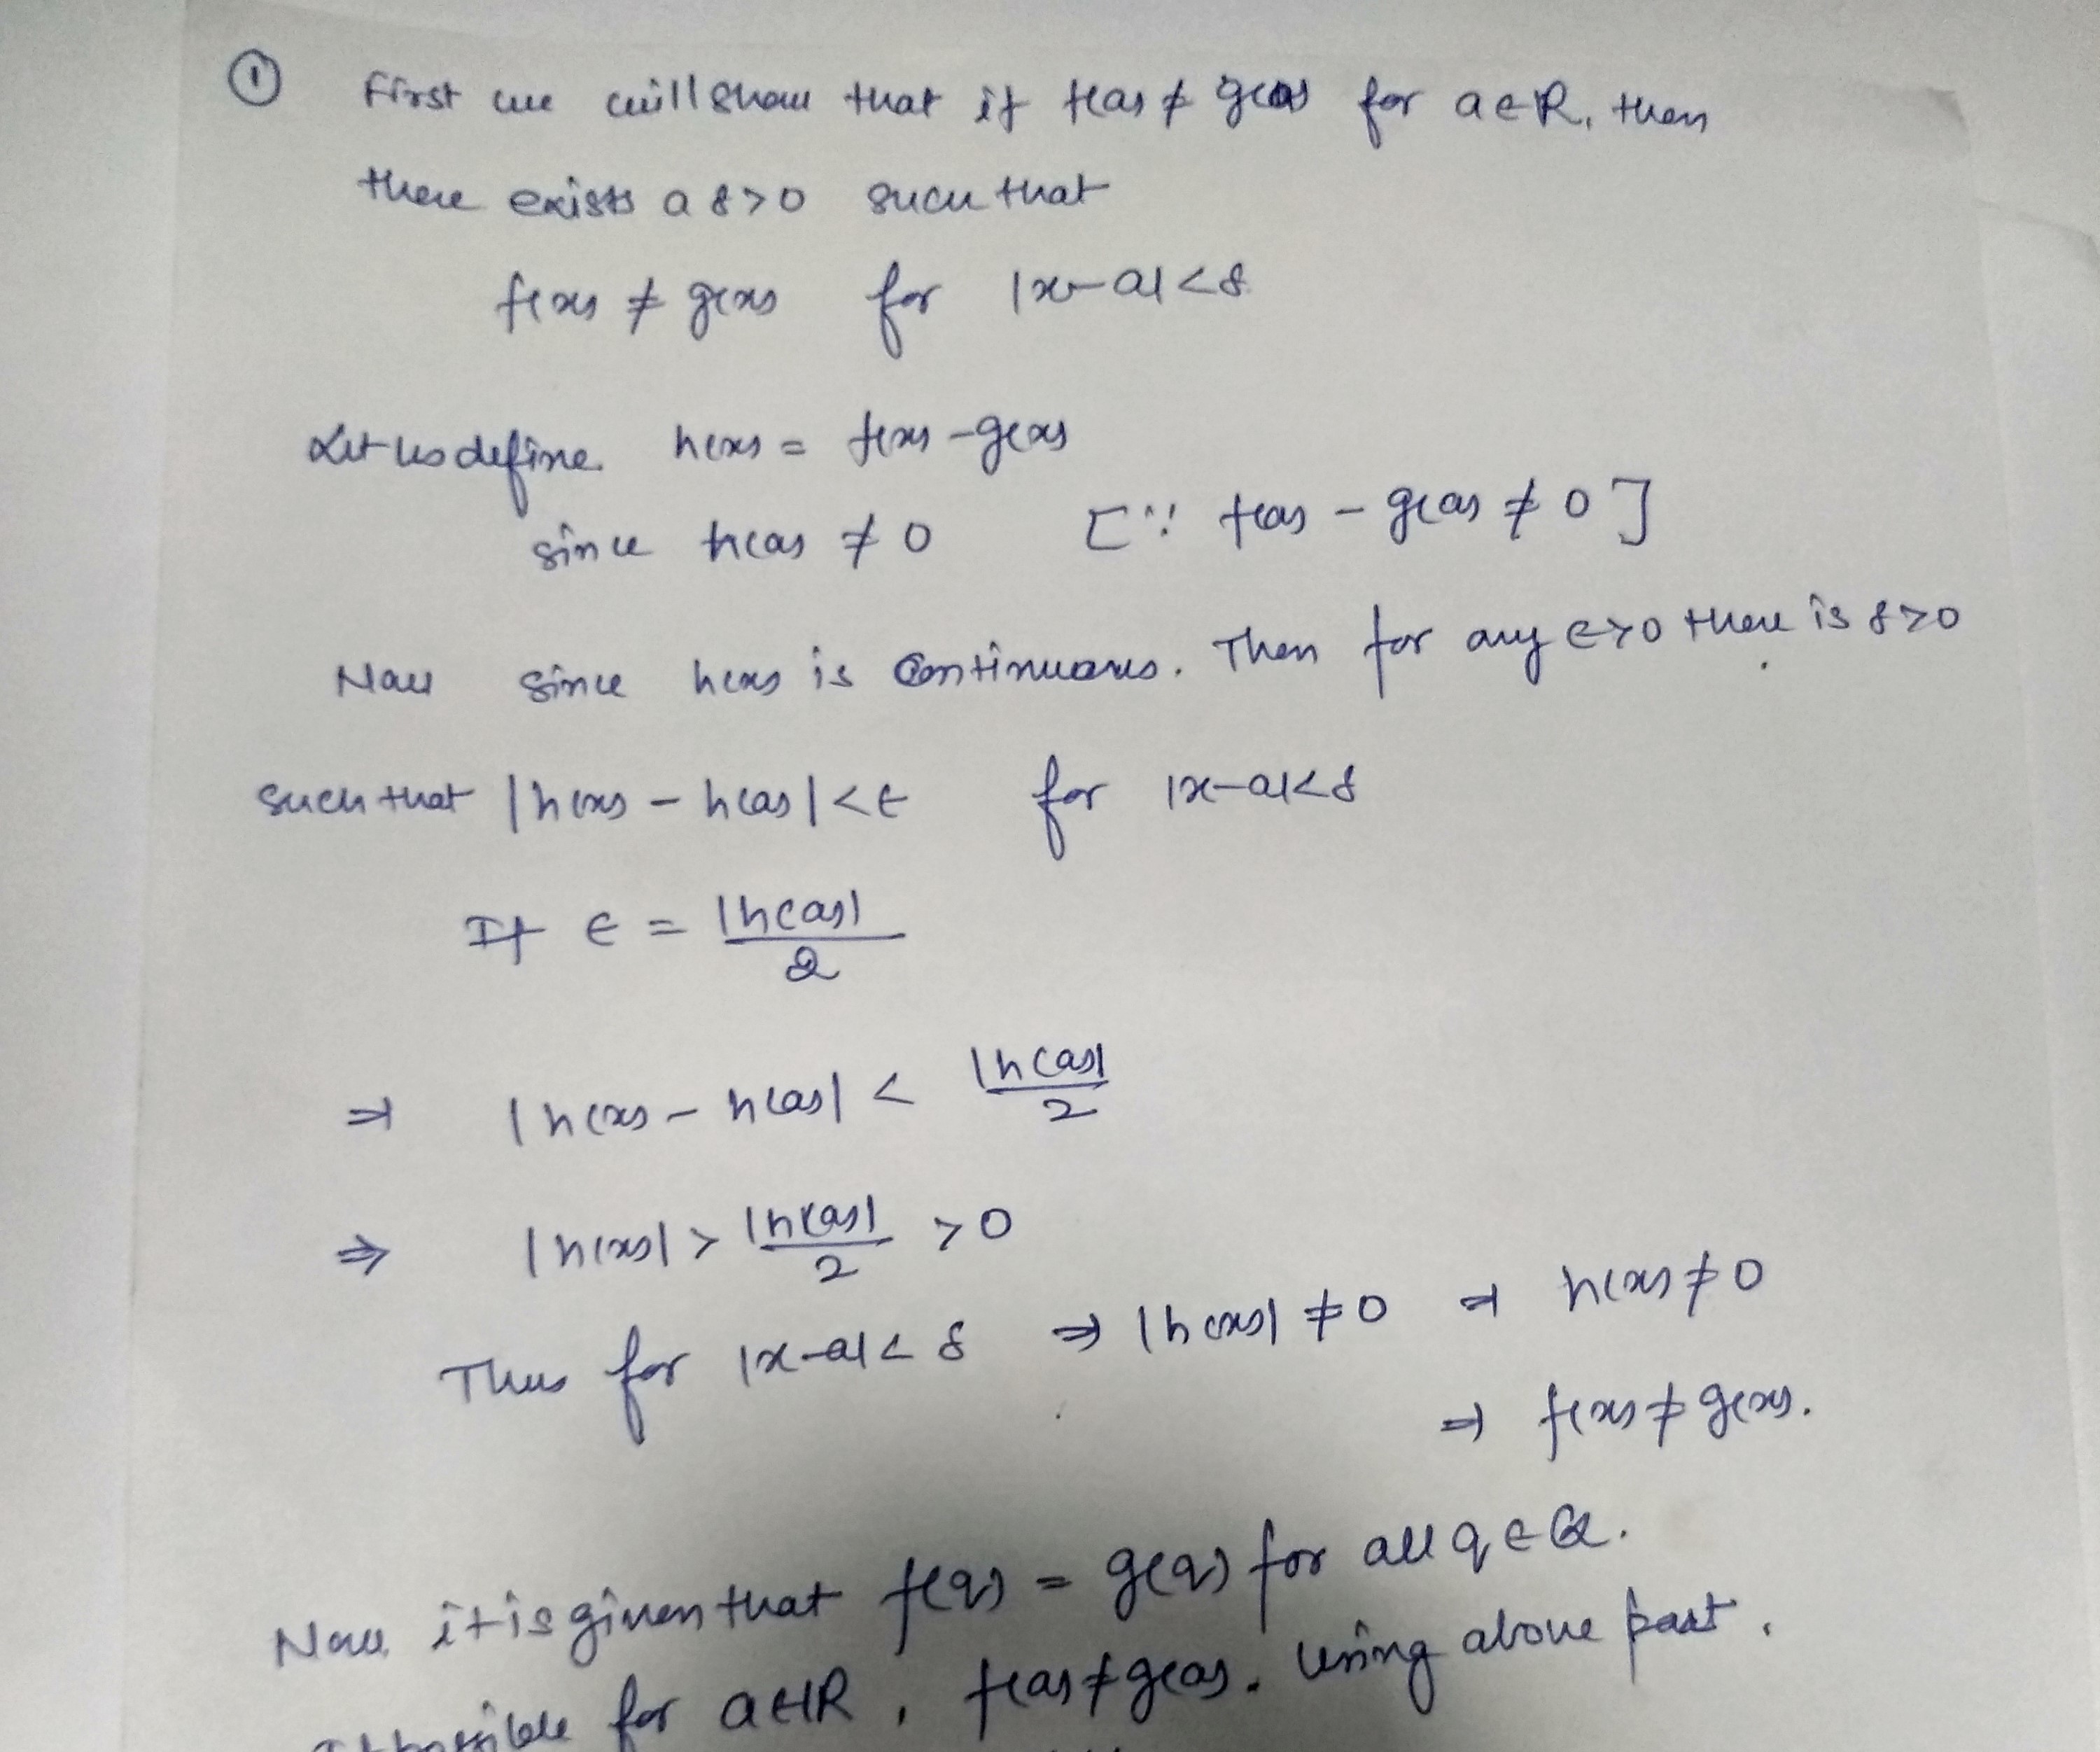 ① First we will show that if f(a) ≠ g(a) for a∈R, then
there exists a δ>0 such that
f(x) ≠ g(x) for |x-a|<δ
Let us define h(x) = f(x)-g(x)
since h(a) ≠ 0 [∵ f(a) - g(a) ≠ 0]
Now since h(x) is continuous. Then for any ϵ>0 there is δ>0
such that |h(x) - h(a)|<ϵ for |x-a|<δ
If ϵ = |h(a)|/2
⇒ |h(x) - h(a)| < |h(a)|/2
⇒ |h(x)| > |h(a)|/2 >0
Thus for |x-a|< δ ⇒ |h(x)| ≠0 ⇒ h(x)≠0
⇒ f(x)≠g(x).
Now it is given that f(q) = g(q) for all q∈Q.
If possible for a∈R, f(a)≠g(a). Using above part,